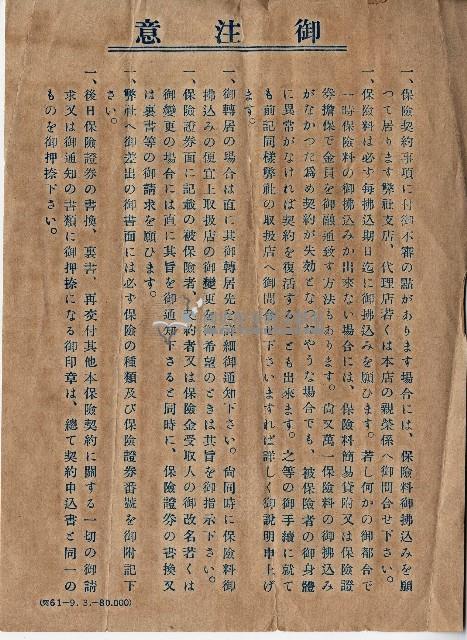 御注意
一、保險契約事項に付御不審の點があります場合には、保險料御拂込みを願
つて居ります弊社支店、代理店若くは本店の親榮係へ御問合せ下さい。
一、保險料は必ず毎拂込期日迄に御拂込みを願ひます。若し何かの御都合で
一時保險料の御拂込みが出來ない場合には、保險料簡易貸附又は保險證
券擔保で金員を御融通致す方法もあります。尙又萬一保險料の御拂込み
がなかつた爲め契約が失効となつたやうな場合でも、被保險者の御身體
に異常がなければ契約を復活することも出來ます。之等の御手續に就て
も前記同樣弊社の取扱店へ御問合せ下さいますれば詳しく御說明申上げ
ます。
一、御轉居の場合は直に其御轉居先を御細御通知下さい。尙同時に保險料御
拂込みの便宜上取扱店の御變更を御希望のときは其旨を御指示下さい。
一、保險證券面に記載の被保險者、契約者又は保險金受取人の御改名若くは
御變更の場合には直に其旨を御通知下さると同時に、保險證券の書換又
は裏書等の御請求を願ひます。
一、弊社へ御差出の御書面には必ず保險の種類及び保險證券番號を御附記下
さい。
一、後日保險證券の書換、裏書、再交付其他本保險契約に關する一切の御請
求又は御通知の書類に御押捺になる御印章は、總て契約申込書と同一の
ものを御押捺下さい。
61-9. 3.-80.000)